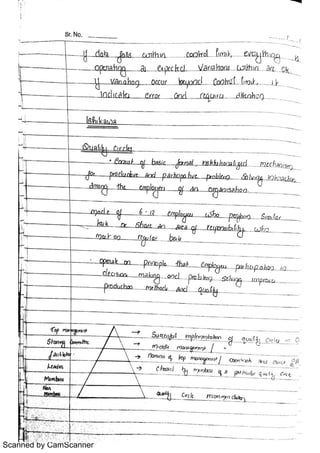 Sr. No.
if data falls within control limit, everything is
operating as expected. Variations within are ok.
if variation occur beyond control limit, it
indicates error and requires attention
Ishikawa
Quality Circles
• Consist of basic formal, institutionalized mechanism
for productive and participative problem solving interaction
among the employees of an organisation
made of 6-12 employees who perform similar
work or share an area of responsibility who
meet on regular basis
• operate on principle that employee participation in
decision making and problem solving improves
production methods and quality
Top management → Successful implementation of quality circle
Steering Committee → made management /
Facilitator → nominee of top management /
Leader → chosen by members of a particular quality circle
Members
Non Members
quality circle
Scanned by CamScanner